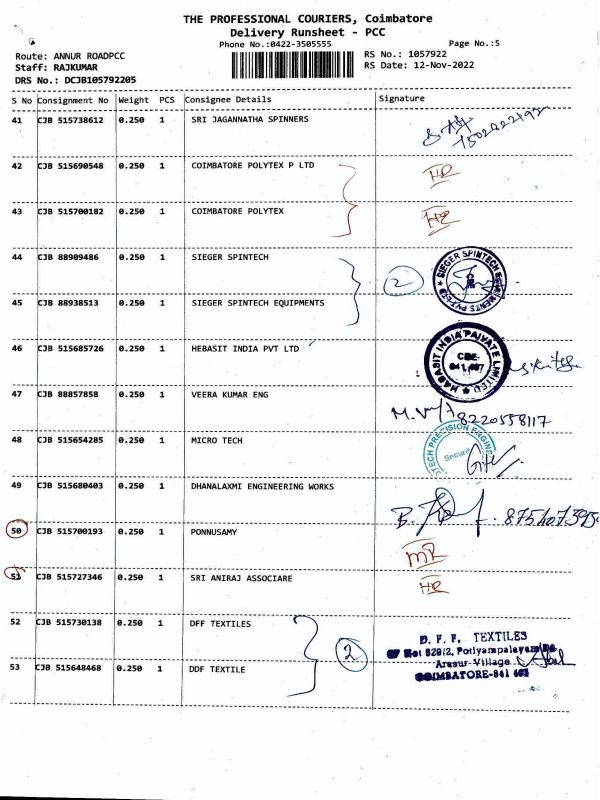 THE PROFESSIONAL COURIERS, Coimbatore
Delivery Runsheet - PCC
Phone No.:0422-3505555 Page No.:5
Route: ANNUR ROADPCC RS No.: 1057922
Staff: RAJKUMAR RS Date: 12-Nov-2022
DRS No.: DCJB105792205
S No Consignment No Weight PCS Consignee Details Signature
41 CJB 515738612 0.250 1 SRI JAGANNATHA SPINNERS
42 CJB 515690548 0.250 1 COIMBATORE POLYTEX P LTD
43 CJB 515700182 0.250 1 COIMBATORE POLYTEX
44 CJB 88909486 0.250 1 SIEGER SPINTECH 2 SIEGER SPINTECH
45 CJB 88938513 0.250 1 SIEGER SPINTECH EQUIPMENTS
46 CJB 515685726 0.250 1 HEBASIT INDIA PVT LTD HABASIT INDIA PRIVATE LIMITED CBE- 641 407
47 CJB 88857858 0.250 1 VEERA KUMAR ENG 8220558117
48 CJB 515654285 0.250 1 MICRO TECH TECH PRECISION ENGINE Security
49 CJB 515680403 0.250 1 DHANALAXMI ENGINEERING WORKS
50 CJB 515700193 0.250 1 PONNUSAMY
51 CJB 515727346 0.250 1 SRI ANIRAJ ASSOCIARE HR
52 CJB 515730138 0.250 1 DFF TEXTILES 2
D. F. F. TEXTILES
Potiyampalayam
Arasur-Village
COIMBATORE-641
53 CJB 515648468 0.250 1 DDF TEXTILE